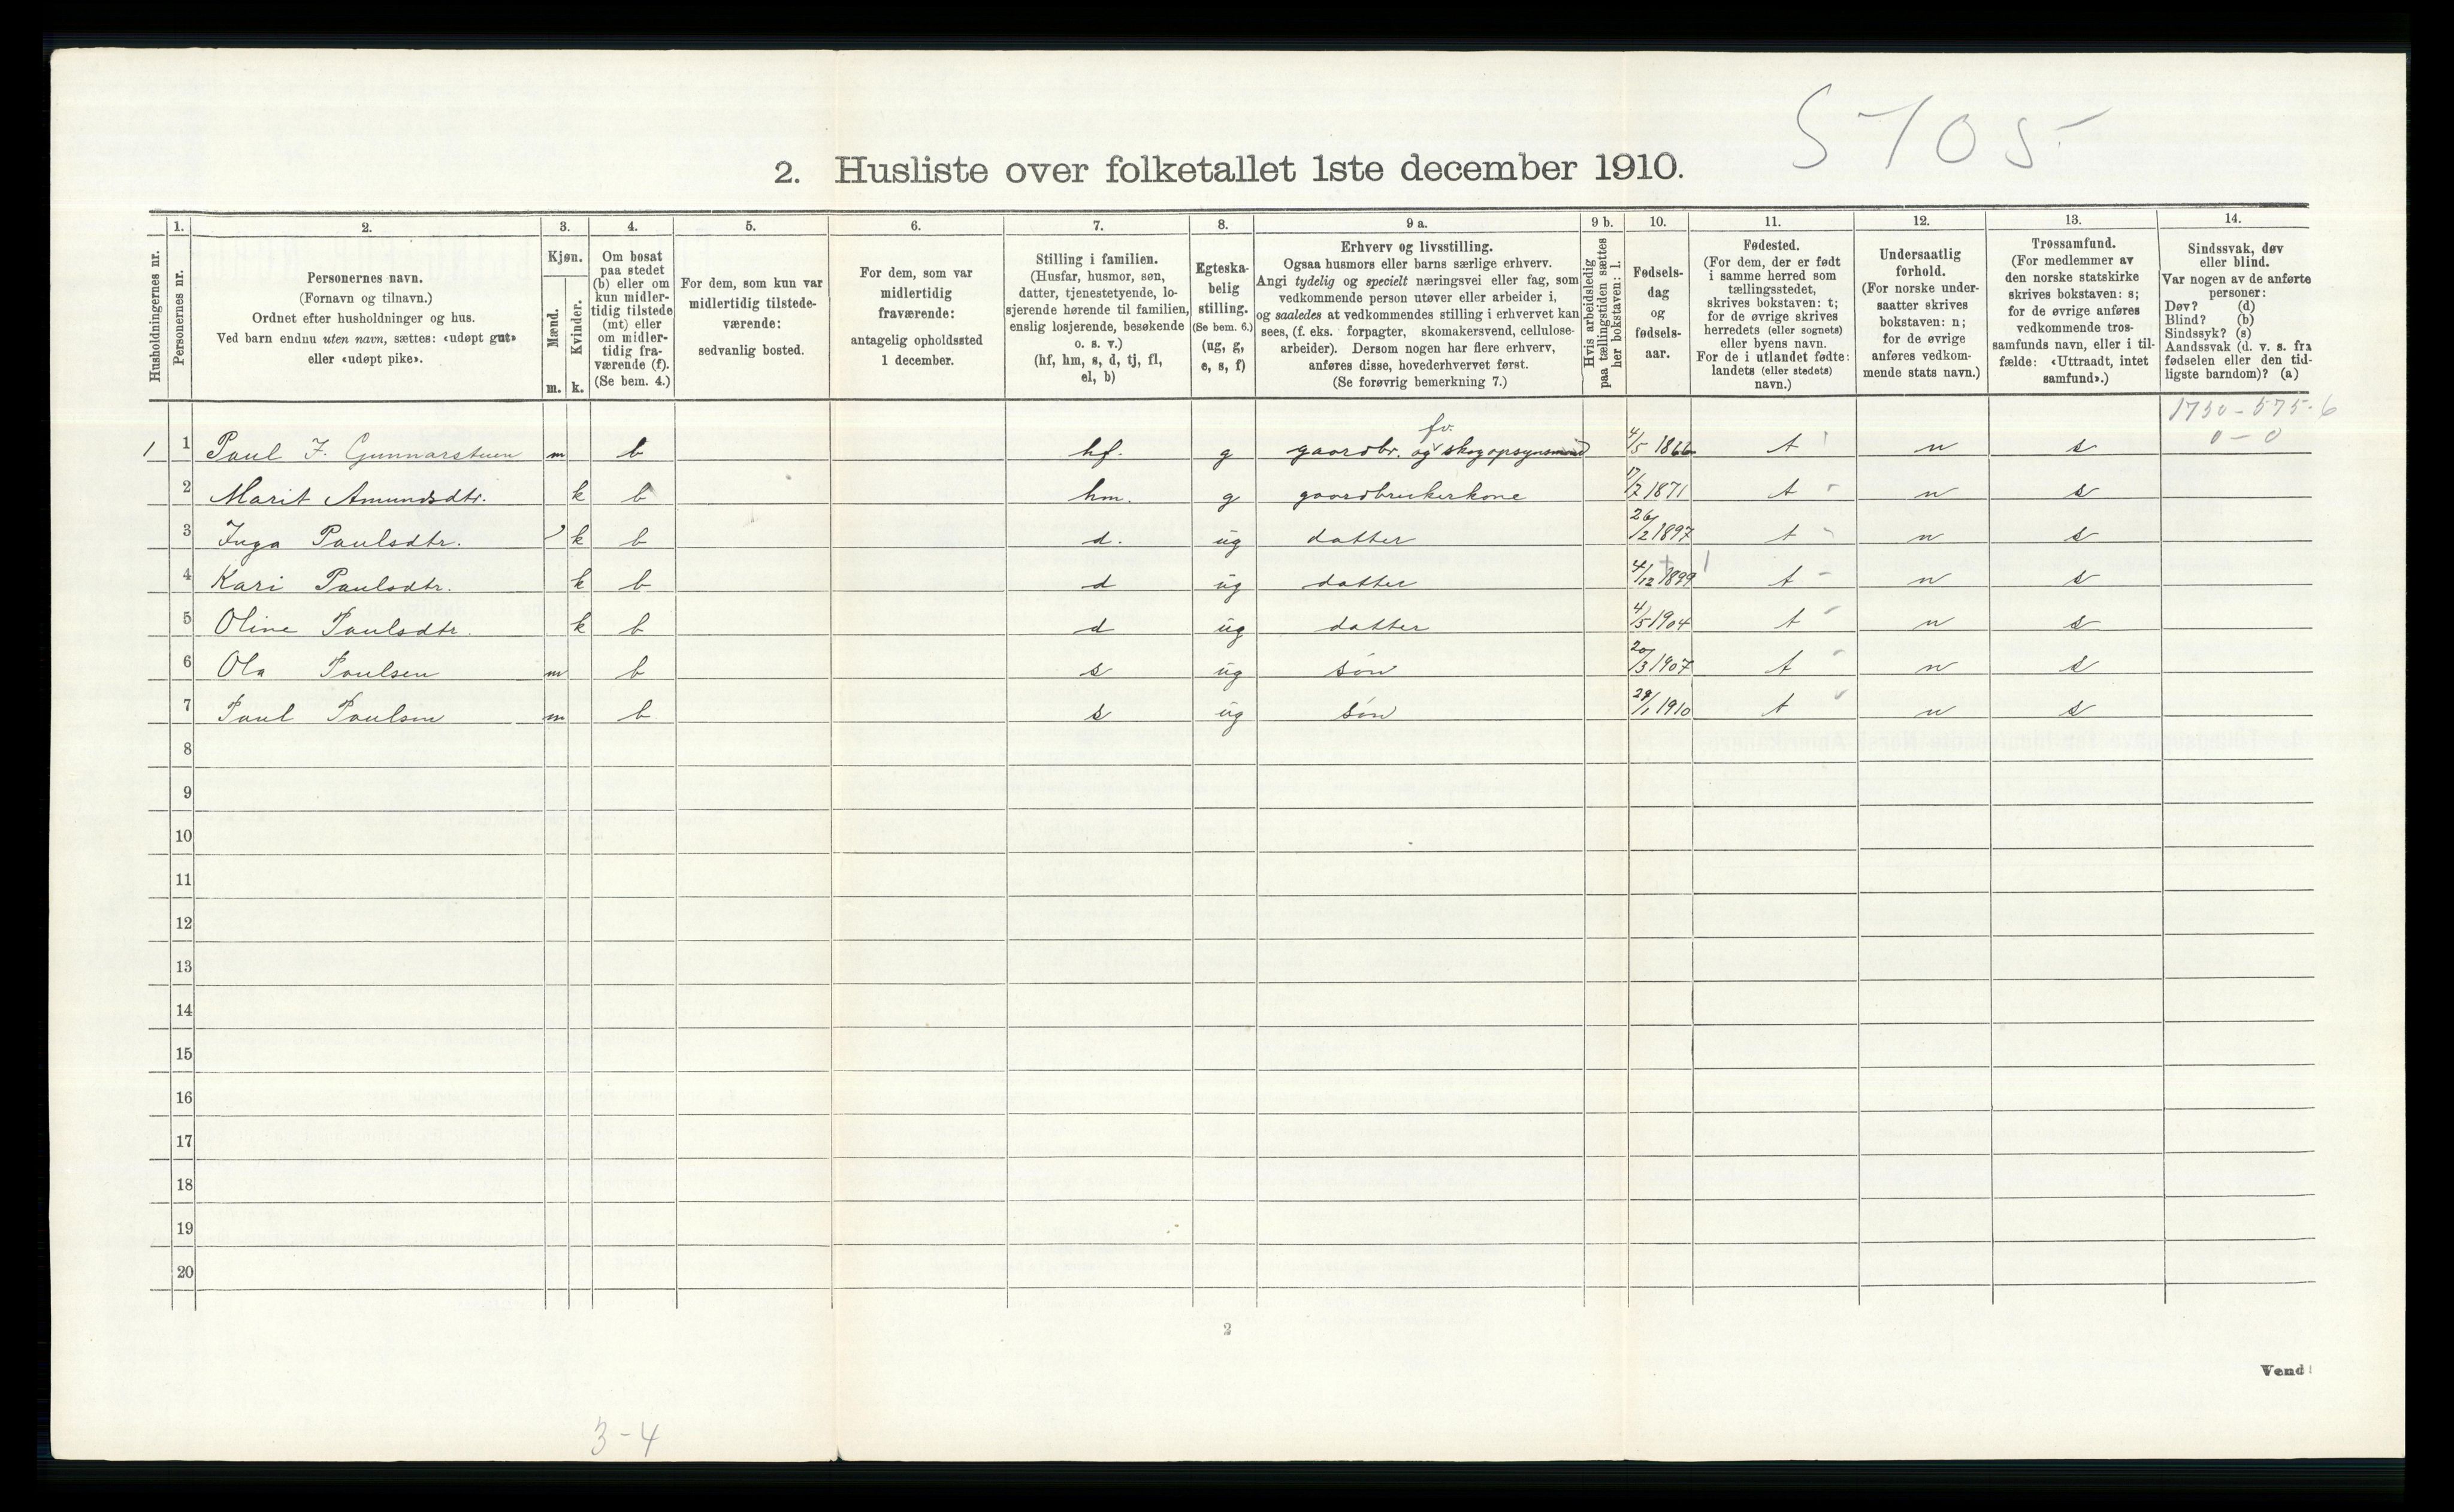 5705
2. Husliste over folketallet 1ste december 1910.
1. 2. 3. 4. 5. 6. 7. 8. 9 a. 9 b. 10. 11. 12. 13. 14.
Husholdningernes nr.
Personernes nr.
Personernes navn.
(Fornavn og tilnavn.)
Ordnet efter husholdninger og hus.
Ved barn endnu uten navn, sættes: «udøpt gut»
eller «udøpt pike».
Kjøn.
Mænd.
m.
Kvinder.
k.
Om bosat
paa stedet
(b) eller om
kun midler-
tidig tilstede
(mt) eller
om midler-
tidig fra-
værende (f).
(Se bem. 4.)
For dem, som kun var
midlertidig tilstede-
værende:
sedvanlig bosted.
For dem, som var
midlertidig
fraværende:
antagelig opholdssted
1 december.
Stilling i familien.
(Husfar, husmor, søn,
datter, tjenestetyende, lo-
sjerende hørende til familien,
enslig losjerende, besøkende
o. s. v.)
(hf, hm, s, d, tj, fl,
el, b)
Egteska-
belig
stilling.
(Se bem. 6.)
(ug, g,
e, s, f)
Erhverv og livsstilling.
Ogsaa husmors eller barns særlige erhverv.
Angi tydelig og specielt næringsvei eller fag, som
vedkommende person utøver eller arbeider i,
og saaledes at vedkommendes stilling i erhvervet kan
sees, (f. eks. forpagter, skomakersvend, cellulose-
arbeider). Dersom nogen har flere erhverv,
anføres disse, hovederhvervet først.
(Se forøvrig bemerkning 7.)
Hvis arbeidsledig
paa tællingstiden sættes
her bokstaven: l.
Fødsels-
dag
og
fødsels-
aar.
Fødested.
(For dem, der er født
i samme herred som
tællingsstedet,
skrives bokstaven: t;
for de øvrige skrives
herredets (eller sognets)
eller byens navn.
For de i utlandet fødte:
landets (eller stedets)
navn.)
Undersaatlig
forhold.
(For norske under-
saatter skrives
bokstaven: n;
for de øvrige
anføres vedkom-
mende stats navn.)
Trossamfund.
(For medlemmer av
den norske statskirke
skrives bokstaven: s;
for de øvrige anføres
vedkommende tros-
samfunds navn, eller i til-
fælde: «Uttraadt, intet
samfund».)
Sindssvak, døv
eller blind.
Var nogen av de anførte
personer:
Døv? (d)
Blind? (b)
Sindssyk? (s)
Aandssvak (d. v. s. fra
fødselen eller den tid-
ligste barndom)? (a)
1730-575-6
0-0
fv.
1 1 Paul J. Gunnarstuen m b hf. g gaardbr. og skogopsynsmand 4/5 1866 t n s
2 Marit Amundsdtr. k b hm. g gaardbrukerkone 17/7 1871 t n s
3 Inga Paulsdtr. k b d. ug datter 26/2 1897 t n s
4 Kari Paulsdtr. k b d ug datter 4/12 1899 t n s
5 Oline Paulsdtr. k b d ug datter 4/5 1904 t n s
6 Ola Paulsen m b s ug søn 20/3 1907 t n s
7 Paul Paulsen m b s ug søn 29/1 1910 t n s
8
9
10
11
12
13
14
15
16
17
18
19
20
2
Vend!
3-4